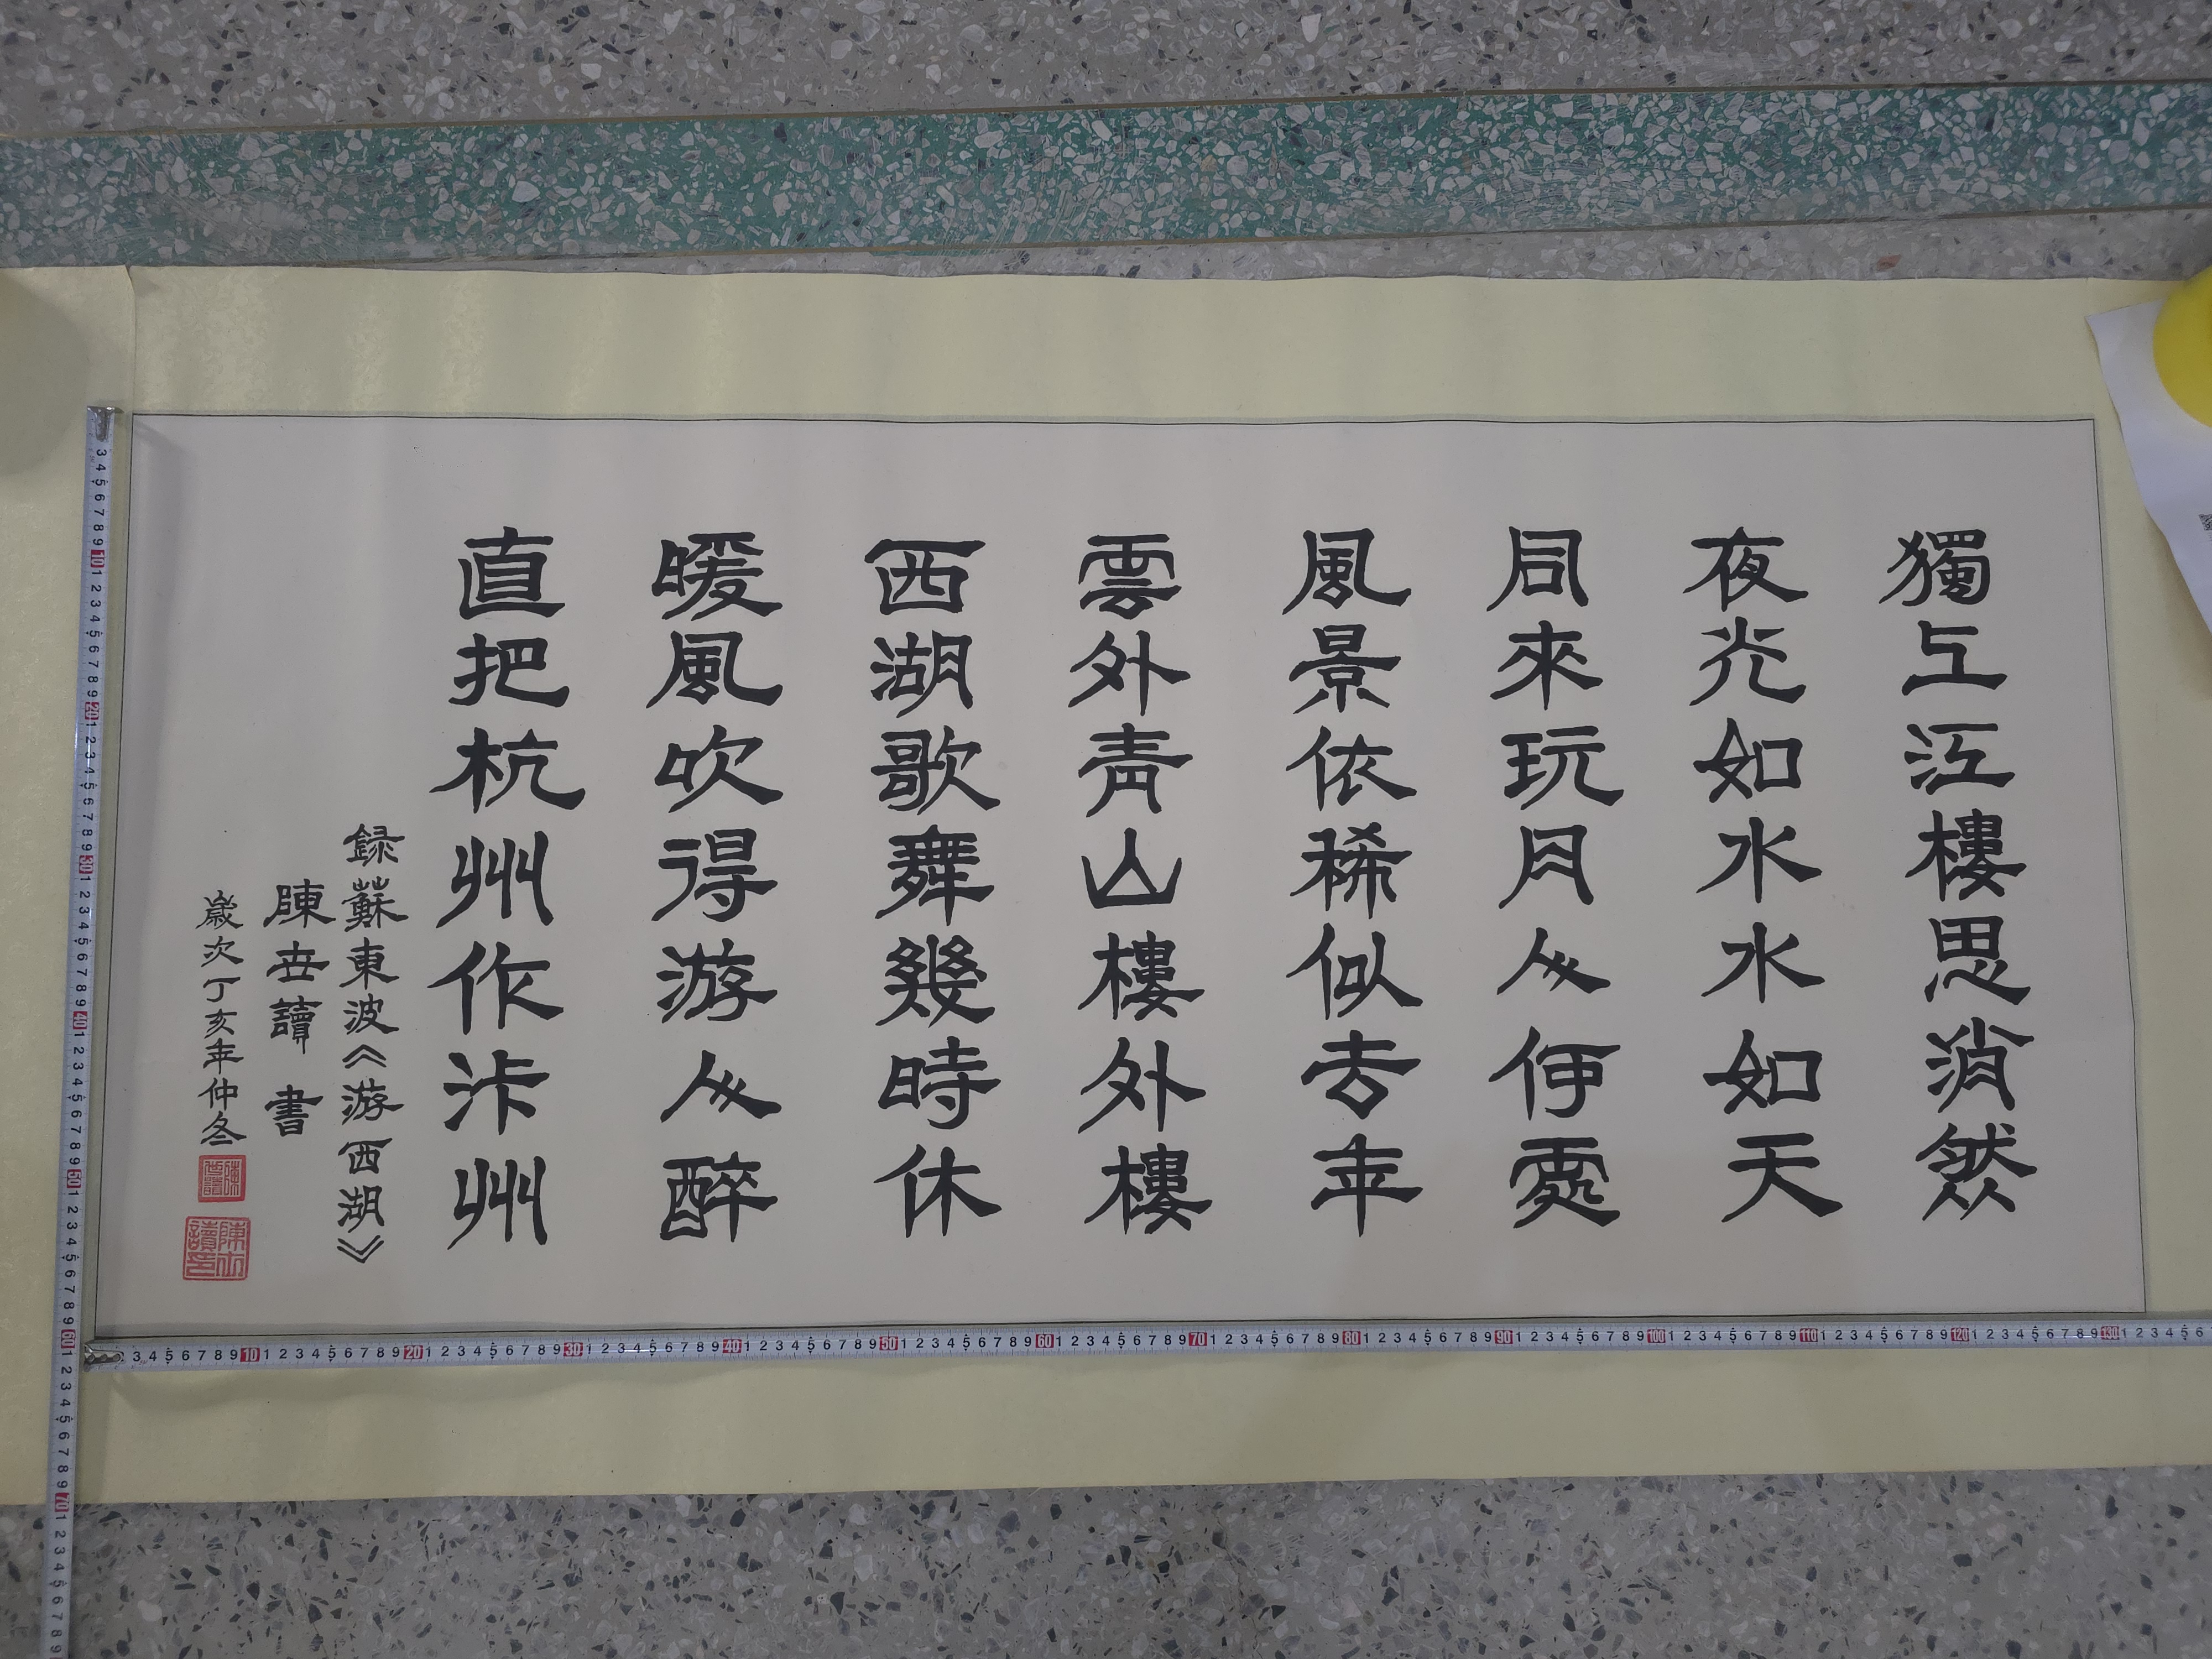 獨上江樓思消然
夜光如水水如天
同來玩月人何處
風景依稀似去年
雲外青山樓外樓
西湖歌舞幾時休
暖風吹得游人醉
直把杭州作汴州
録蘇東波《游西湖》
陳世讀 書
歲次丁亥年仲冬